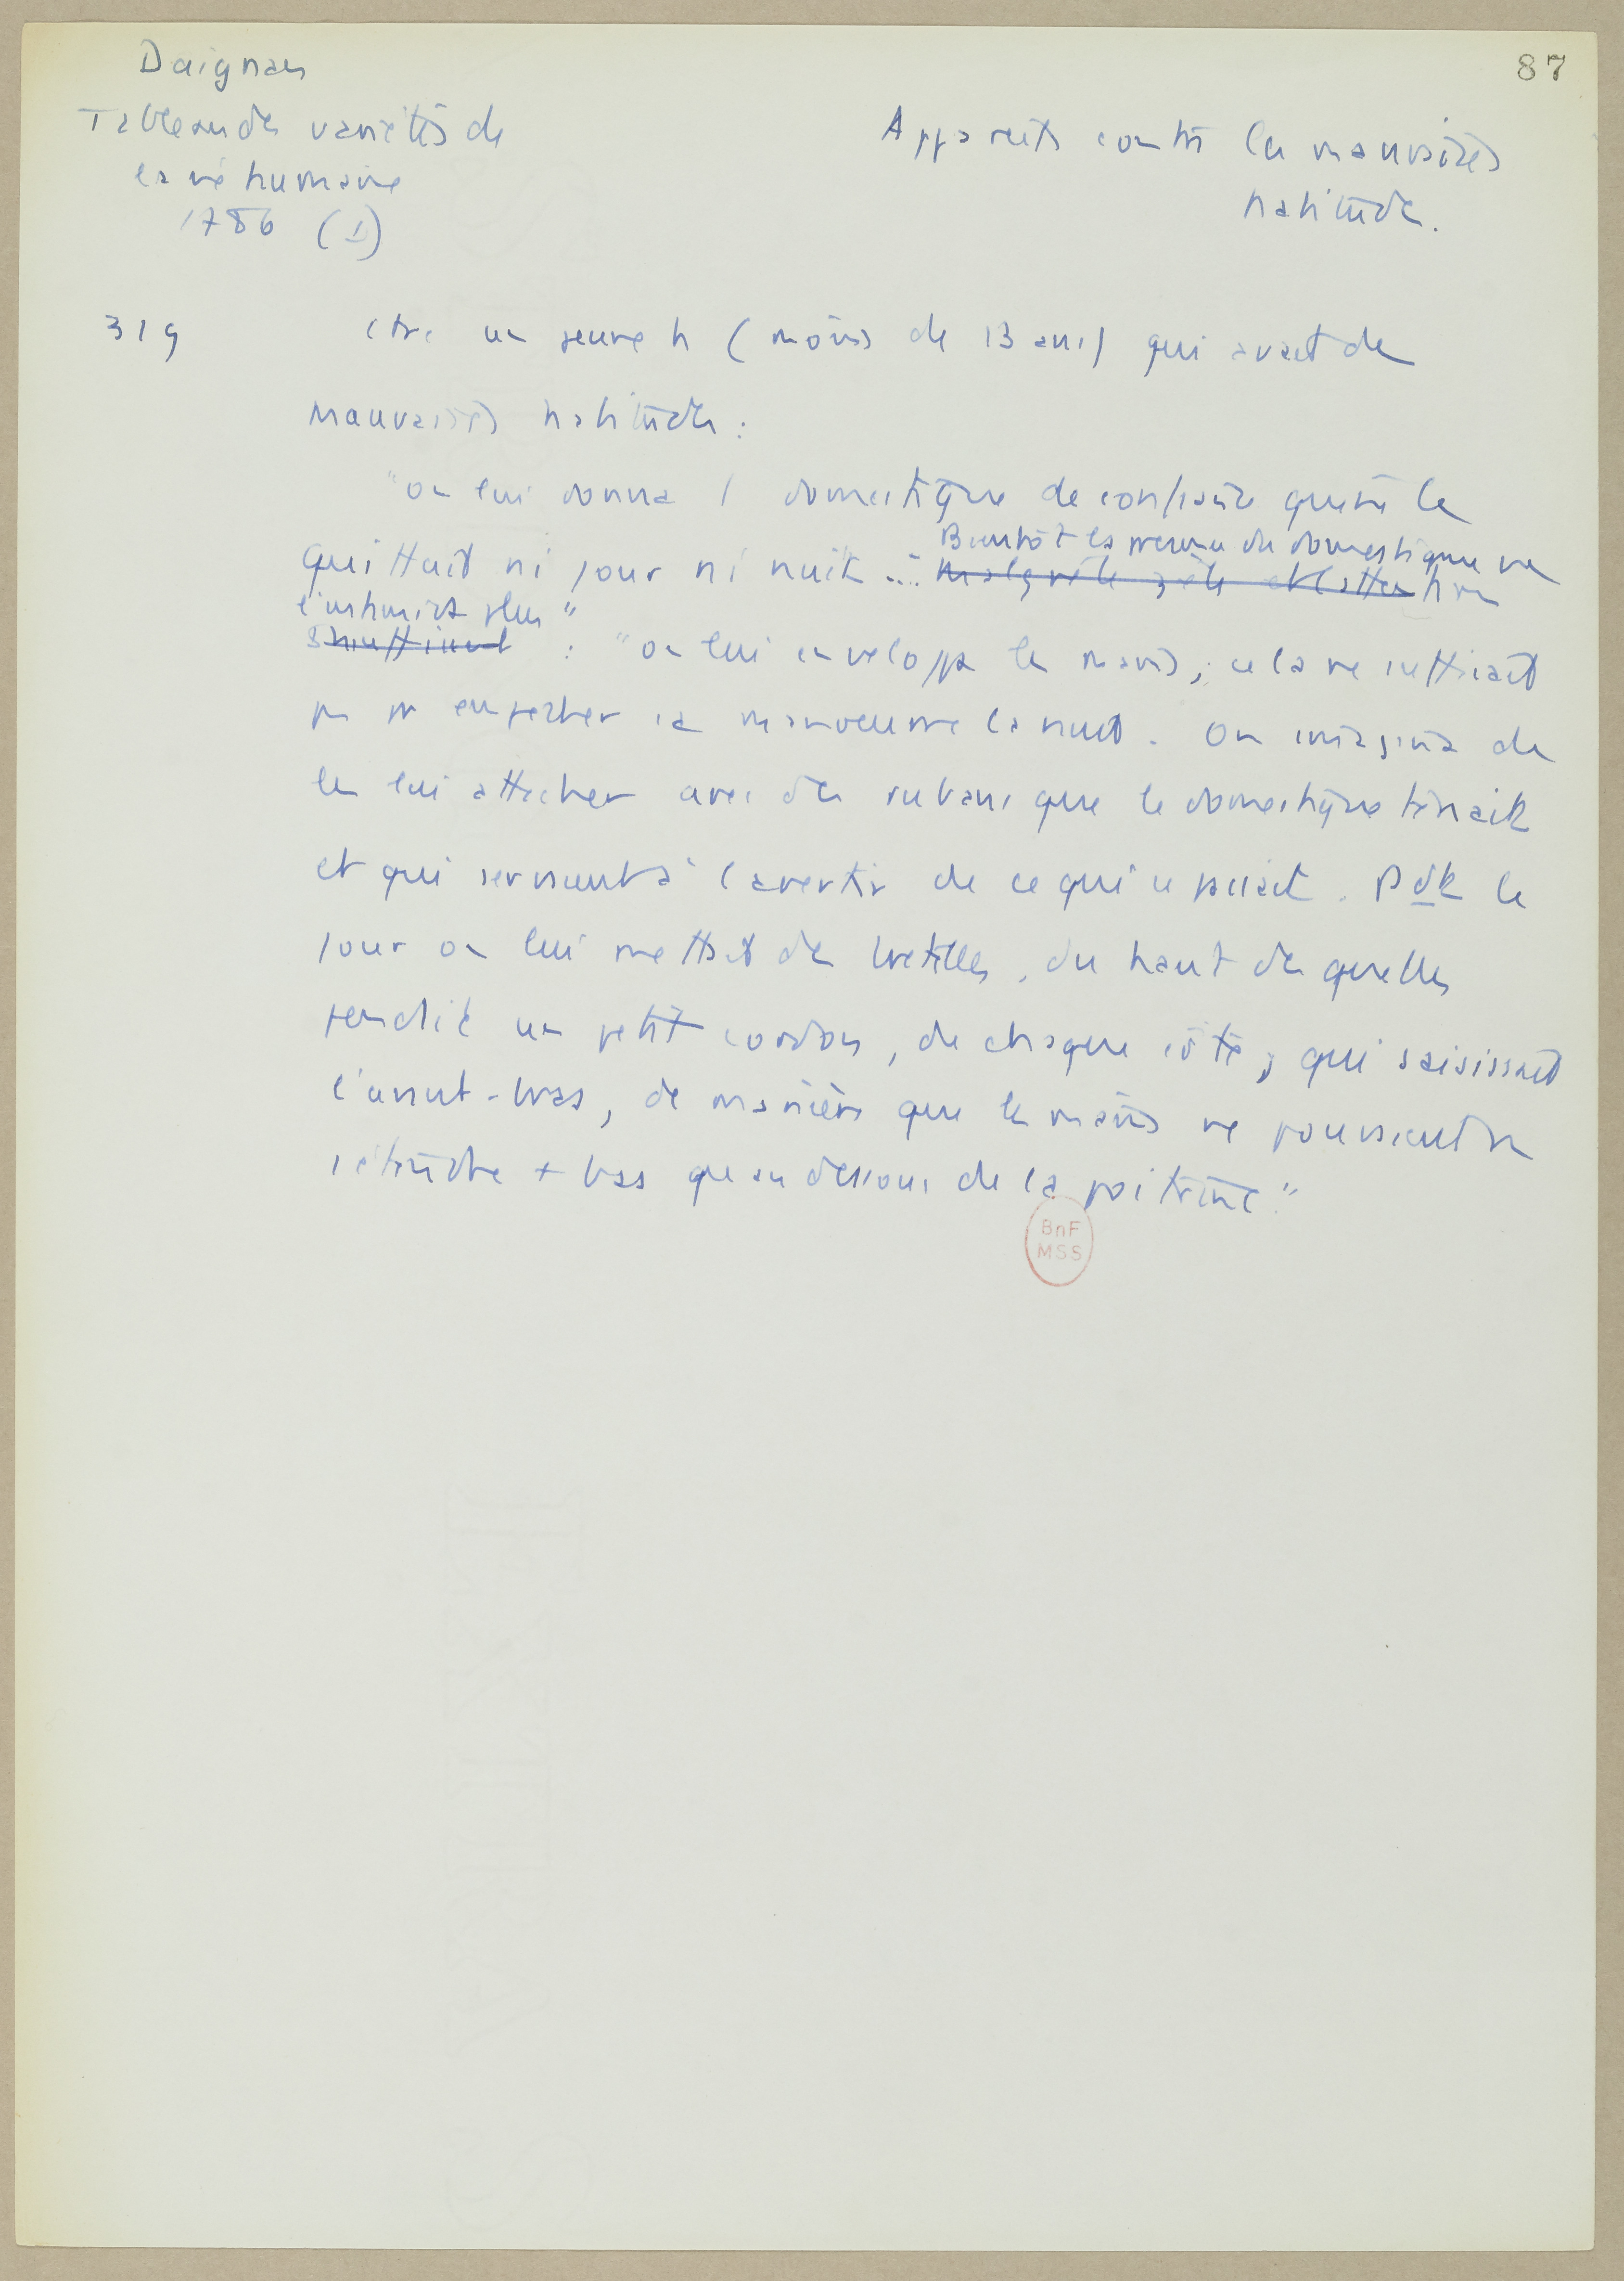 87
Daignan
Tableau des variétés de
la vie humaine
1786 (I)
Appareils contre les mauvaises
habitudes.
319
ctre un jeune h (moins de 13 ans) qui avait de
mauvaises habitudes :
"on lui donna 1 domestique de confiance qui ne le
quittait ni jour ni nuit ...
Bientôt la présence du domestique ne
malgré le zèle et l'attention
l'intimida plus"
insuffisant : "on lui enveloppa les mains, cela ne suffisait
pas pr empecher sa manoeuvre la nuit. On imagina de
les lui attacher avec des rubans que le domestique tenait
et qui servaient à l'avertir de ce qui se passait. Pdt le
jour on lui mettait des bretelles, du haut desquelles
pendit un petit cordon, de chaque côté, qui saisissait
l'avant-bras, de manière que les mains ne pouvaient
s'étendre + bas qu'au dessous de la poitrine."
BnF
MSS